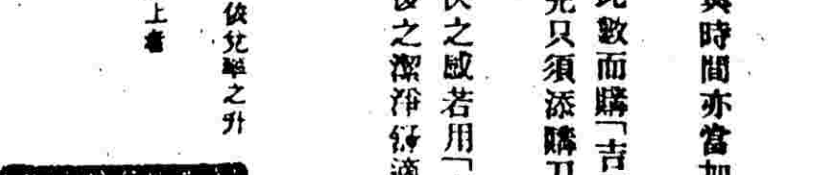 時間亦當加
數而購「吉
只須添購刀
之感若用「
之潔淨舒適
依兌率之升
上者